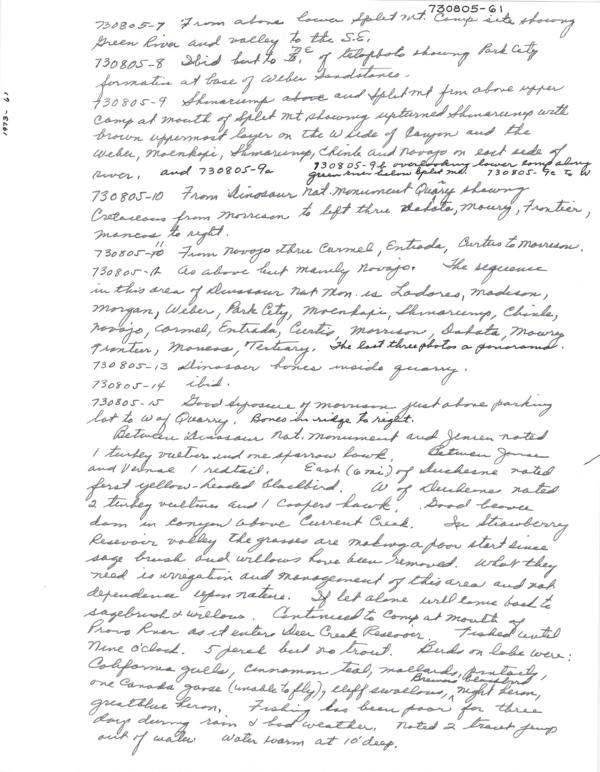 730805-61
730805-7 From above lower Split Mt. Camp site showing
Green River and valley to the S.E.
730805-8 Ibid but to N.E. of telephoto showing Park City
formation at base of Weber Sandstones.
730805-9 Shinarump above and Split Mt from above upper
camp at mouth of Split Mt showing upturned Shinarump with
brown uppermost layer on the W side of Canyon and the
Weber, Moenkopi, Shinarump, Chinle and Navajo on east side of
river. and 730805-9a 730805-9b overlooking lower camp along
green river below Split Mt. 730805-9c to W
730805-10 From Dinosaur Nat. Monument Quary showing
Cretaceous from Morrison to left thru Dakota, Mowry, Frontier,
Mancos to right.
730805-11 From Navajo thru Carmel, Entrada, Curtis to Morrison.
730805-12 As above but mainly Navajo. The sequence
in this area of Dinosaur Nat Mon. is Ladores, Madison,
Morgan, Weber, Park City, Moenkopi, Shinarump, Chinle,
Navajo, Carmel, Entrada, Curtis, Morrison, Dakota, Mowry
Frontier, Mancos, Tertiary. The last three photos a panorama.
730805-13 Dinosaur bones inside quarry.
730805-14 ibid.
730805-15 Good exposure of morrison just above parking
lot to W of Quarry. Bones in ridge to right.
Between Dinosaur Nat. Monument and Jensen noted
1 turkey vulture and one sparrow hawk. Between Jensen
and Vernal 1 redtail. East (6 mi) of Duchesne noted
first yellow-headed blackbird. W of Duchesne noted
2 turkey vultures and 1 Coopers hawk. Good beaver
dam in canyon above Current Creek. In Strawberry
Reservoir valley the grasses are making a poor start since
sage brush and willows have been removed. What they
need is irrigation and management of this area and not
dependence upon nature. If let alone will come back to
sagebrush & willows. Continued to Camp at mouth of
Provo River as it enters Deer Creek Reservoir. Fished until
Nine o'clock. 5 perch but no trout. Birds on lake were:
California gulls, cinnamon teal, mallards, pintails,
one Canada goose (unable to fly), cliff swallows, Brewers blackbird night heron,
great blue heron. Fishing has been poor for three
days during rain & bad weather. Noted 2 trout jump
out of water Water warm at 10' deep.
1973-61